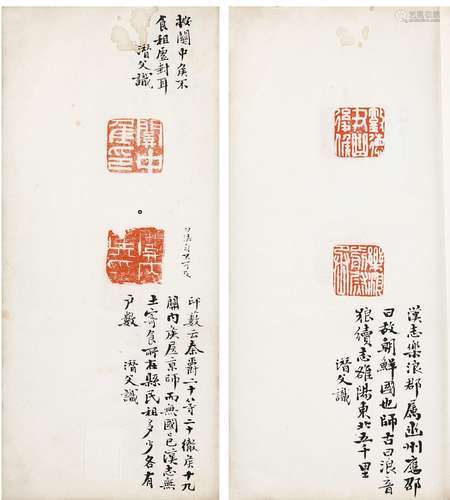 漢志樂浪郡屬幽州應邵
曰故朝鮮國也師古曰浪音
狼續志雒陽東北五千里
潛父識
按關中矦不
食租虛封耳
潛父識
關中
侯印
印藪云秦爵二十等二十徹矦十九
關内矦居京師而無國邑漢志無
土寄食所在縣民租多少各有
户數 潛父識